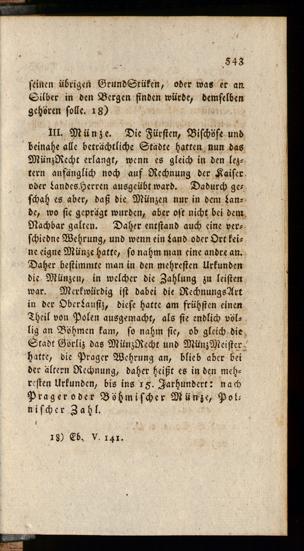 543
seinen übrigen GrundStüken, oder was er an
Silber in den Bergen finden würde, demselben
gehören solle. 18)
III. Münze. Die Fürsten, Bischöfe und
beinahe alle beträchtliche Städte hatten nun das
MünzRecht erlangt, wenn es gleich in den lez-
tern anfänglich noch auf Rechnung der Kaiser
oder LandesHerren ausgeübt ward. Dadurch ge-
schah es aber, daß die Münzen nur in dem Lan-
de, wo sie geprägt wurden, aber oft nicht bei dem
Nachbar galten. Daher entstand auch eine ver-
schiedne Wehrung, und wenn ein Land oder Ort kei-
ne eigne Münze hatte, so nahm man eine andre an.
Daher bestimmte man in den mehresten Urkunden
die Münzen, in welcher die Zahlung zu leisten
war. Merkwürdig ist dabei die RechnungsArt
in der Oberlausiz, diese hatte am frühsten einen
Theil von Polen ausgemacht, als sie endlich völ-
lig an Böhmen kam, so nahm sie, ob gleich die
Stadt Görliz das MünzRecht und MünzMeister
hatte, die Prager Wehrung an, blieb aber bei
der ältern Rechnung, daher heißt es in den meh-
resten Urkunden, bis ins 15. Jarhundert: nach
Prager oder Böhmischer Münze, Pol-
nischer Zahl.
18) Eb. V. 141.